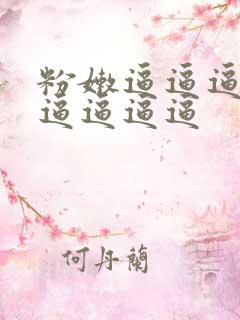 粉嫩逼逼逼
逼逼逼逼
何丹蘭